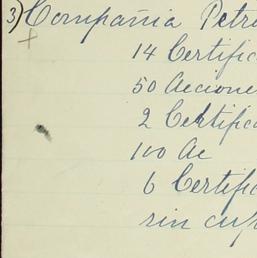 3) Compañia Petr
14 Certific
50 Accione
2 Certific
100 Ac
6 Certific
sin cup